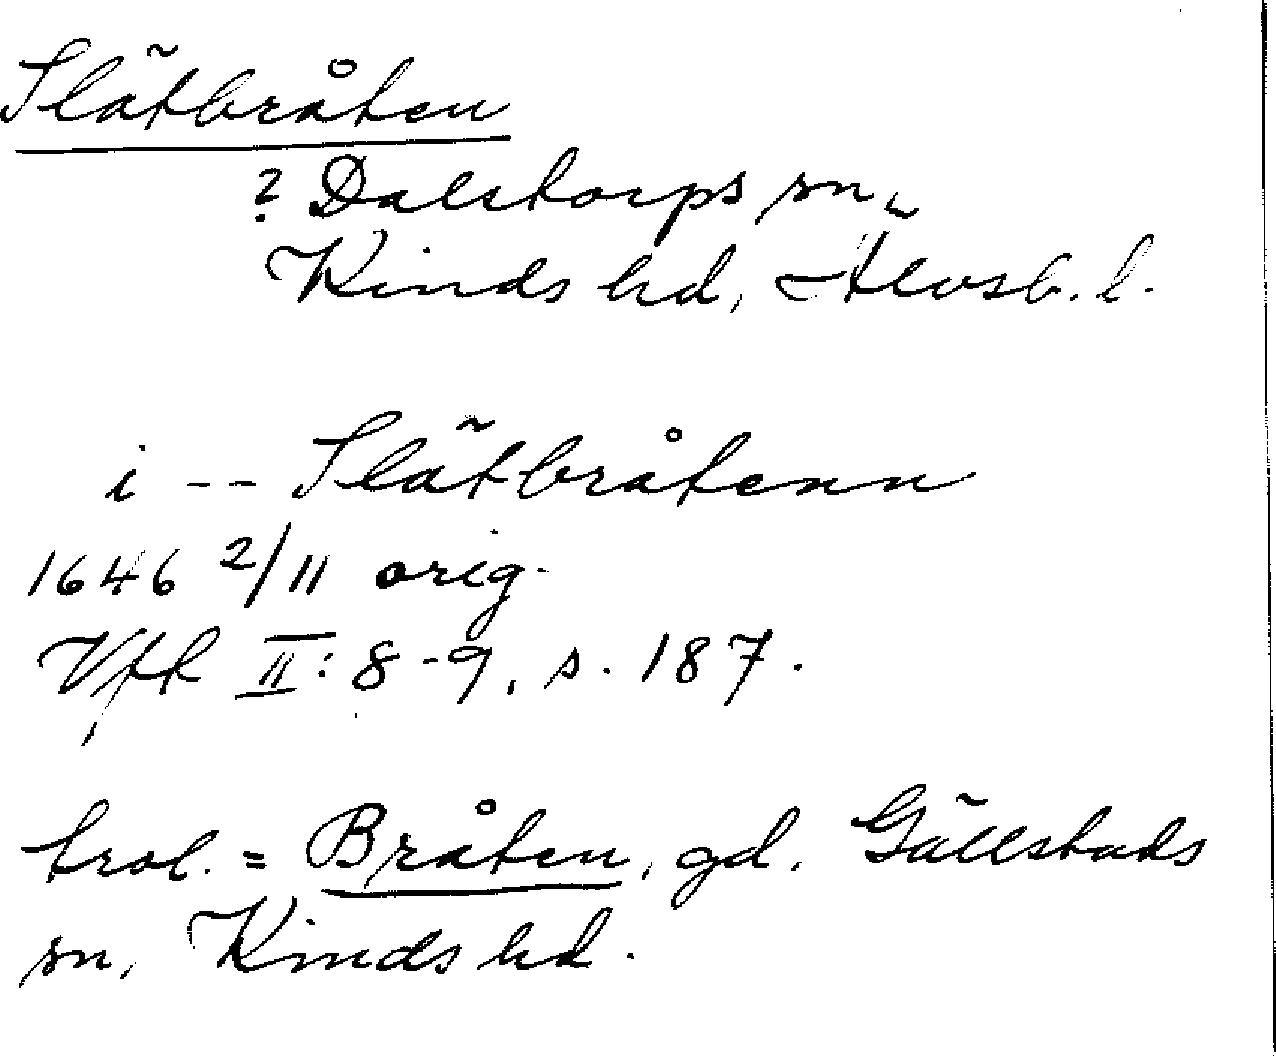 Slätbråten
? Dalstorps sn,
Kinds hd, Älvsb. l.
i -- Slätbråtenn
1646 2/11 orig.
Vfk II: 8-9, s. 187.
trol. = Bråten, gd. Gällstads
sn, Kinds hd.